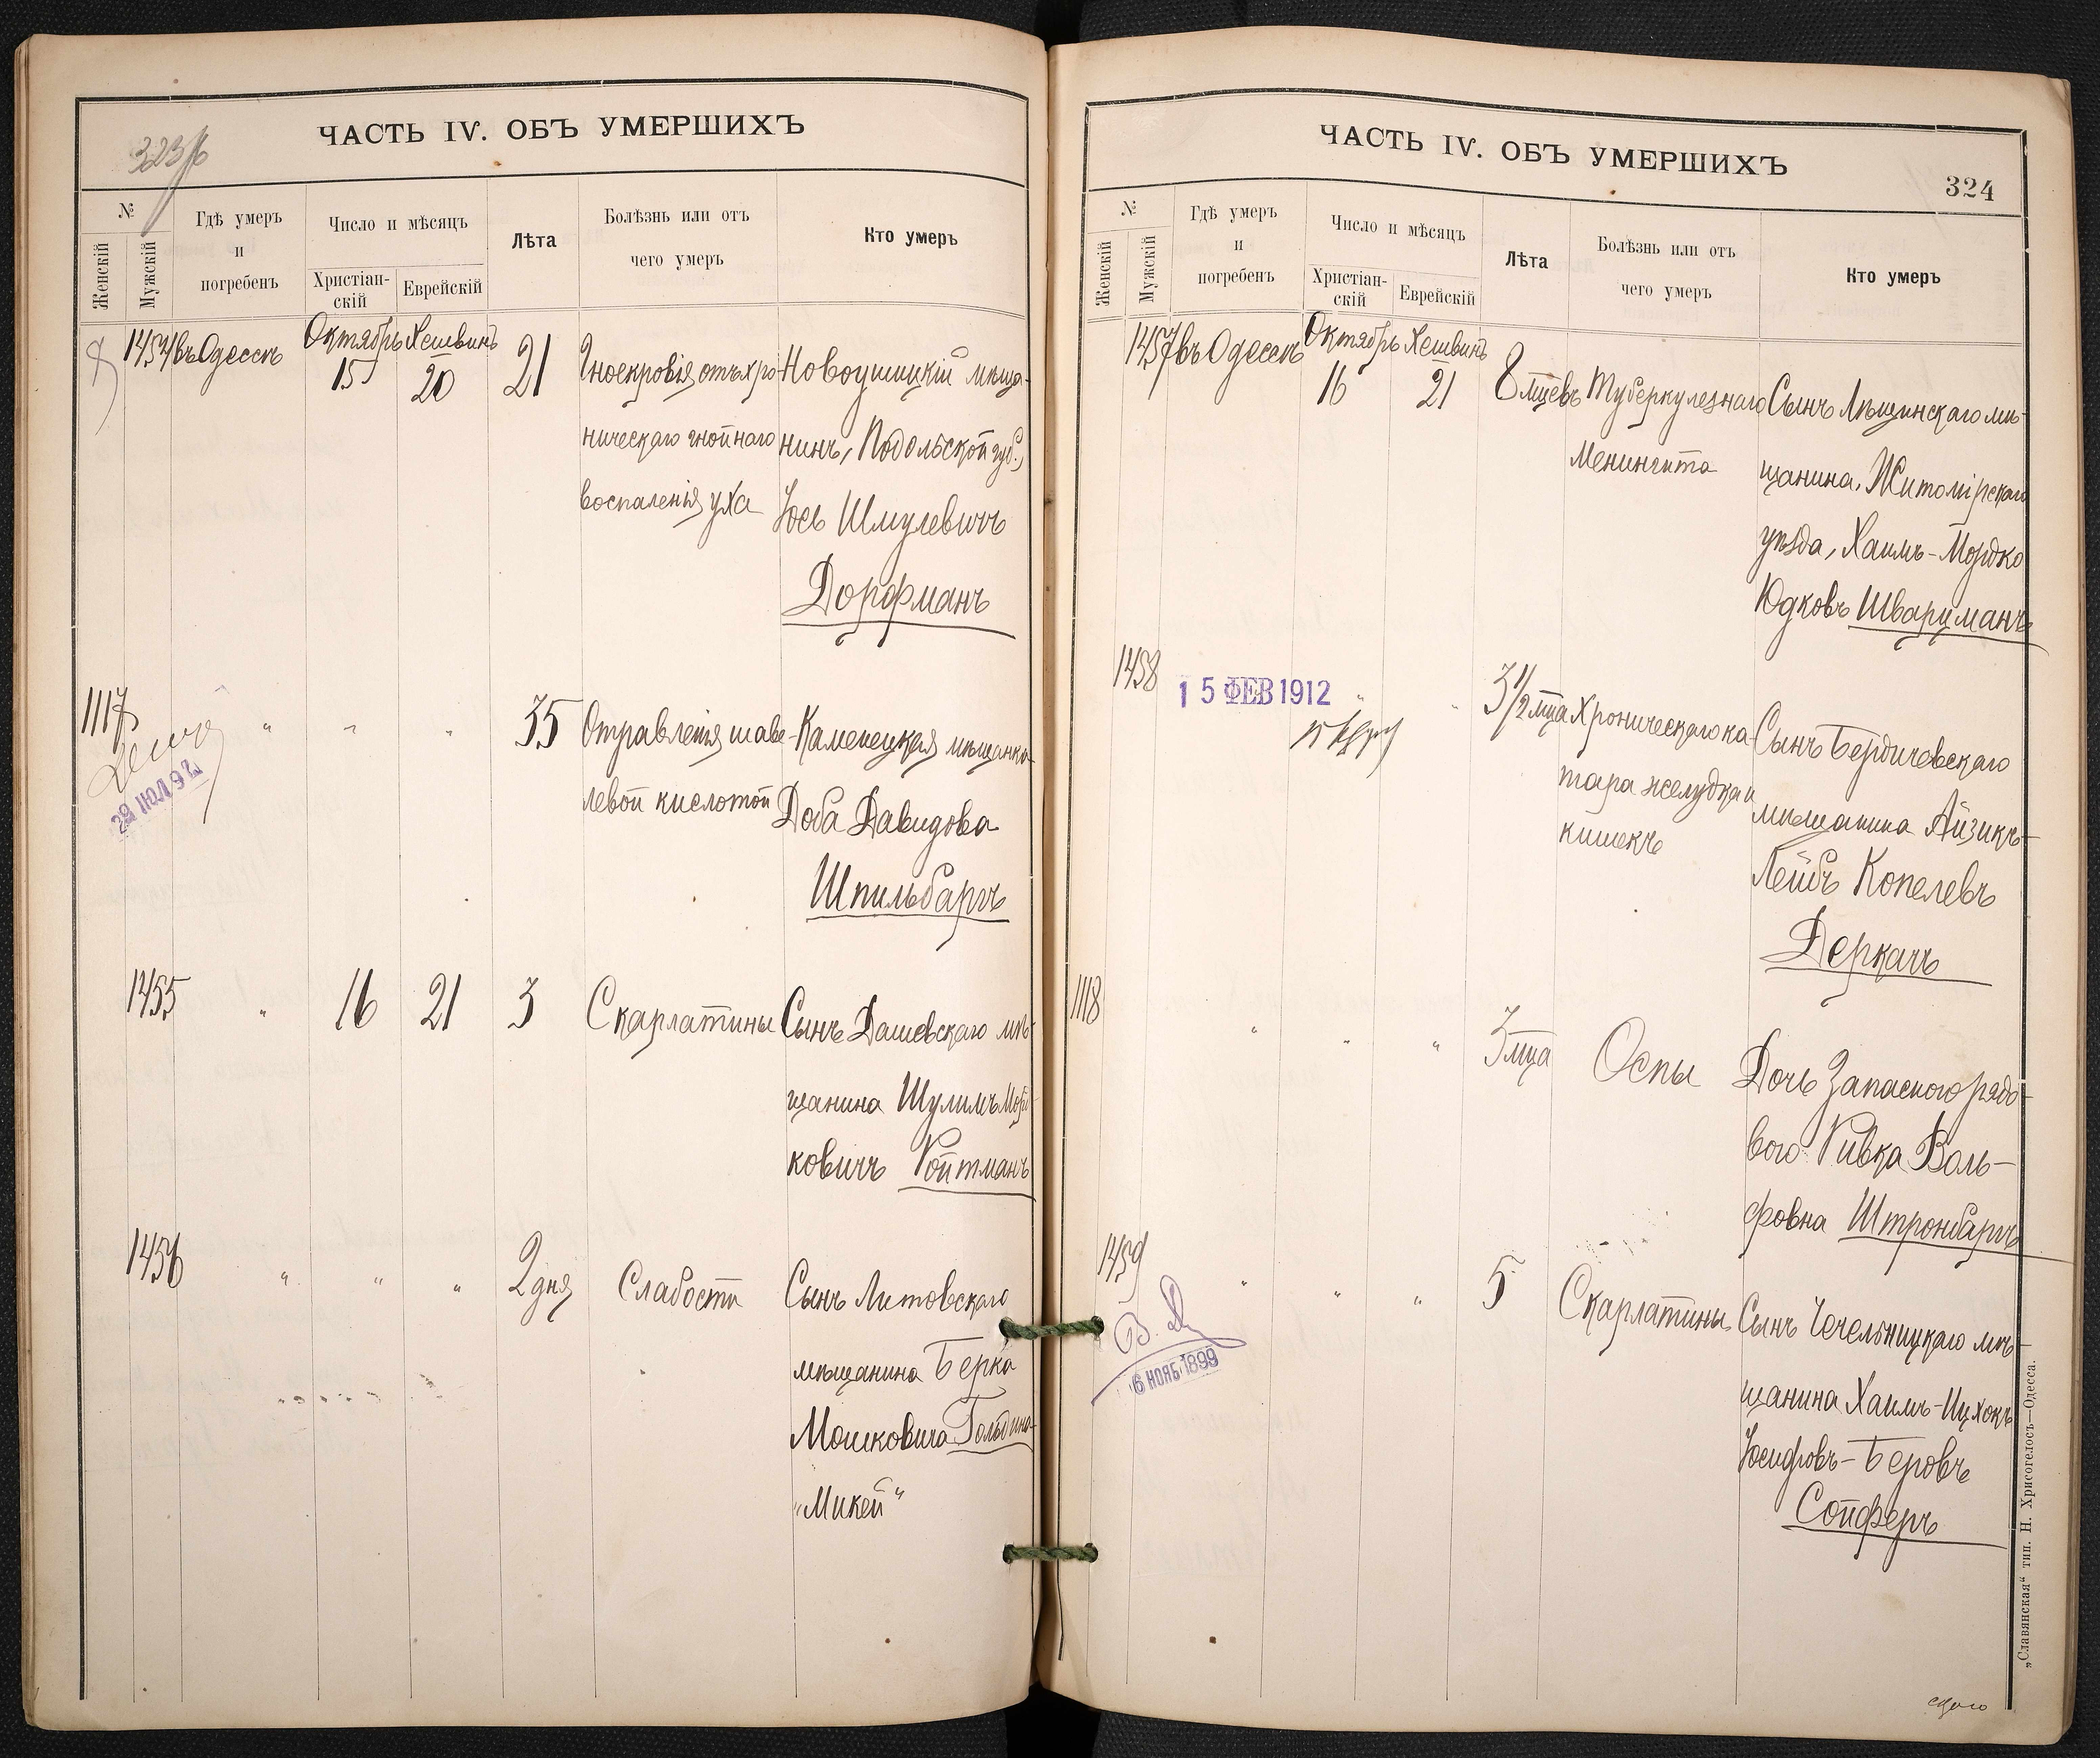 ЧАСТЬ IV. ОБЪ УМЕРШИХЪ
№
Женскій
Мужскій
Гдѣ умеръ
и
погребенъ
Число и мѣсяцъ
Христіан-
скій
Еврейскій
Лѣта
Болѣзнь или отъ
чего умеръ
Кто умеръ
1454
въ Одессѣ
Октябрь
15
Хешвинъ
20
21
Гноекровія отъ хро-
ническаго гнойнаго
воспаленія уха
Новоушицкій мѣща-
нинъ, Подольской губ.,
Іось Шмулевичъ
Дорфманъ
1117
29 ІЮЛ 92
"
"
"
35
Отравленія щаве-
левой кислотой
Каменецкая мѣщанка
Доба Давидова
Шпильбаргъ
1455
"
16
21
3
Скарлатины
Сынъ Дашевскаго мѣ-
щанина Шулимъ Морд-
ковичъ Ройтманъ
1456
"
"
"
2 дня
Слабости
Сынъ Литовскаго
мѣщанина Берка
Мошковича
"Микей"
ЧАСТЬ IV. ОБЪ УМЕРШИХЪ
324
№
Женскій
Мужскій
Гдѣ умеръ
и
погребенъ
Число и мѣсяцъ
Христіан-
скій
Еврейскій
Лѣта
Болѣзнь или отъ
чего умеръ
Кто умеръ
1457
въ Одессѣ
Октябрь
16
Хешвинъ
21
8 мцевъ
Туберкулезнаго
Менингита
Сынъ Лѣщинскаго мѣ-
щанина, Житомірскаго
уѣзда, Хаимъ-Мордко
Юдковъ Шварцманъ
1458
15 ФЕВ 1912
"
"
3 1/2 мца
Хроническаго ка-
тара желудка и
кишекъ
Сынъ Бердичевскаго
мѣщанина Айзикъ-
Лейбъ Копелевъ
Деркачъ
1118
"
"
"
3 мца
Оспы
Дочь Запасного рядо-
вого Ривка Воль-
фовна Штронбаргъ
1459
6 НОЯБ 1899
"
"
"
5
Скарлатины
Сынъ Чечельницкаго мѣ-
щанина Хаимъ-Ицхокъ
Іосифовъ-Беровъ
Сойферъ
„Славянская“ тип. Н. Хрисогелосъ—Одесса.